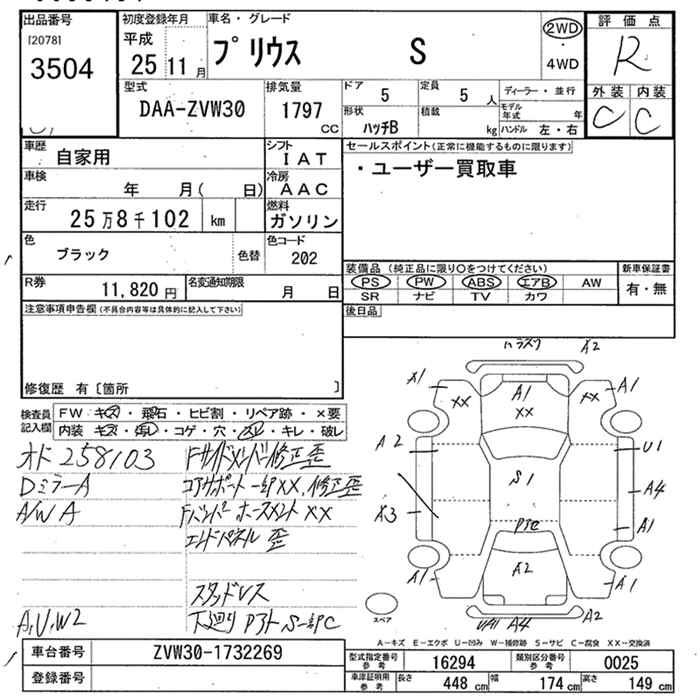 出品番号
[2078]
3504
初度登録年月
平成
25 11 月
車名・グレード
プリウス S
2WD
・
4WD
評価点
R
外装 内装
C C
型式
DAA-ZVW30
排気量
1797 CC
ドア
5
定員
5 人
ディーラー・並行
形状
ハッチB
積載
kg
モデル年式 年
ハンドル 左・右
車歴
自家用
シフト
IAT
車検
年 月( 日)
冷房
AAC
走行
25万8千102 km
燃料
ガソリン
色
ブラック
色替
色コード
202
R券
11,820 円
名変通知期限
月 日
セールスポイント(正常に機能するものに限ります)
・ユーザー買取車
装備品(純正品に限り○をつけてください)
PS PW ABS エアB AW
SR ナビ TV カワ
新車保証書
有・無
後日品
注意事項申告欄(不具合内容等は具体的に記入して下さい)
修復歴 有〔箇所 〕
検査員記入欄
FW キズ・飛石・ヒビ割・リペア跡・×要
内装 キズ・汚れ・コゲ・穴・スレ・キレ・破レ
オド 258103
Fサイドメンバー修正歪
DミラーA
コアサポート一部XX、修正歪
A/W A
Fバンパーホースメント XX
エンドパネル歪
スタッドレス
A,U,W2
下廻り Pアト S一部C
A2
A1 XX A1 XX XX A1
A2 U1
S1
A3 A4
A1
PTC
A1 A2 A1
スペア
A4 A2
A-キズ E-エクボ U-凹み W-補修跡 S-サビ C-腐食 XX-交換済
車台番号
ZVW30-1732269
登録番号
型式指定番号 参考
16294
類別区分番号 参考
0025
車庫証明用 参考
長さ 448 cm 幅 174 cm 高さ 149 cm